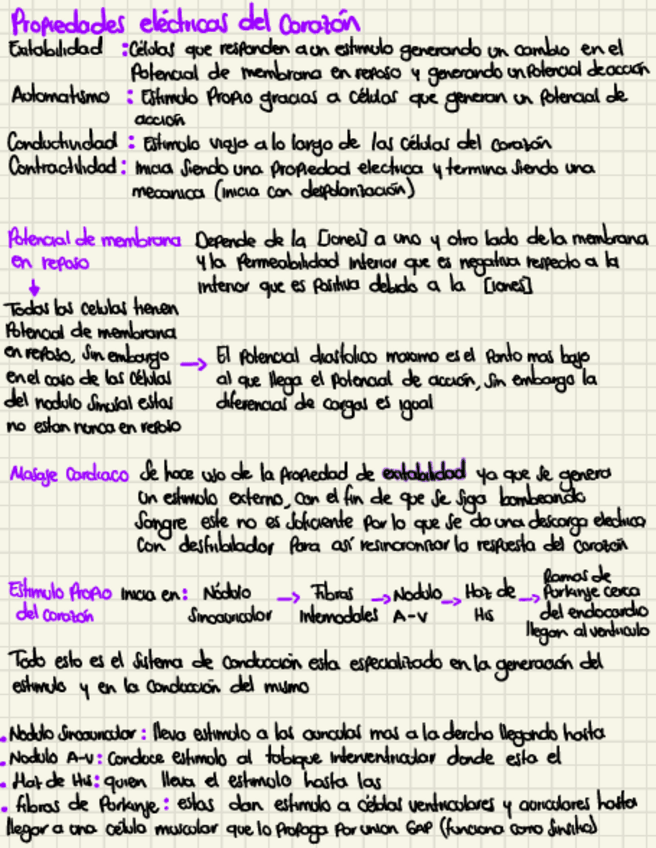 Propiedades eléctricas del Corazón
Exitabilidad : Células que responden a un estimulo generando un cambio en el
Potencial de membrana en reposo y generando un Potencial de acción
Automatismo : Estimulo Propio gracias a células que generan un Potencial de
acción
Conductividad : Estimulo viaja a lo largo de las células del corazón
Contractilidad : Inicia siendo una Propiedad electrica y termina siendo una
mecanica (inicia con despolarización)
Potencial de membrana Depende de la [Iones] a uno y otro lado de la membrana
en reposo y la Permeabilidad interior que es negativa respecto a la
interior que es Positiva debido a la [Iones]
Todas las celulas tienen
Potencial de membrana
en reposo, Sin embargo → El Potencial diastolico maximo es el Punto mas bajo
en el caso de las Células al que llega el Potencial de acción, Sin embargo la
del nodulo Sinusal estas diferencias de cargas es igual
no estan nunca en reposo
Masaje Cardiaco Se hace uso de la Propiedad de exitabilidad ya que se genera
un estimulo externo, con el fin de que se siga bombeando
Sangre este no es Suficiente Por lo que se da una descarga electrica
Con desfibrilador Para así resincronizar la respuesta del corazón
Estimulo Propio Inicia en : Nódulo → Fibras → Nodulo → Haz de → Ramas de Purkinje cerca
del corazón Sinoauricular Internodales A-V His del endocardio
llegan al ventriculo
Todo esto es el Sistema de Conducción esta especializado en la generación del
estimulo y en la Conducción del mismo
. Nodulo Sinoauricular : lleva estimulo a las auriculas mas a la dercha llegando hasta
. Nodulo A-V : Conduce estimulo al tabique interventricular donde esta el
. Haz de His : quien lleva el estimulo hasta las
. fibras de Purkinje : estas dan estimulo a células ventriculares y auriculares hasta
llegar a una célula muscular que lo Propaga Por union GAP (funciona como Sinsitio)